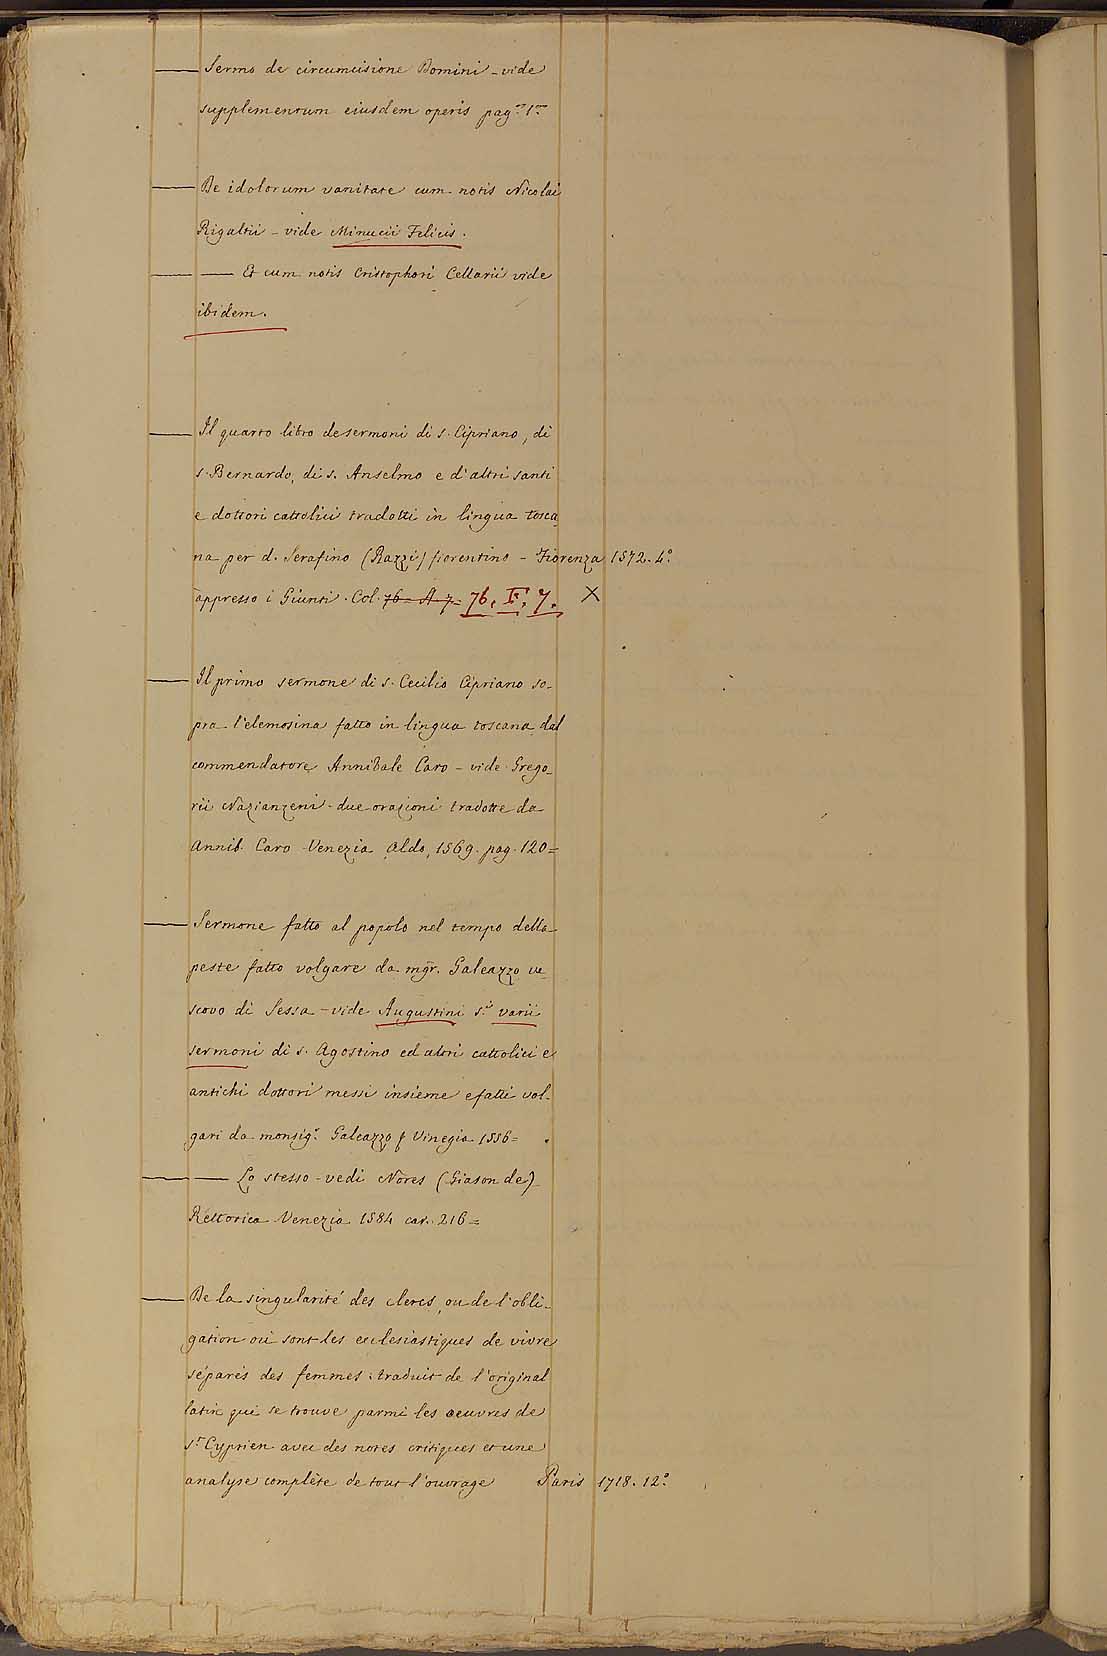 —— Sermo de circumcisione Domini - vide
supplementum eiusdem operis pag.ª 1.ª
—— De idolorum vanitate cum notis Nicolai
Rigaltii - vide Minucii Felicis.
—— —— Et cum notis Cristophori Cellarii vide
ibidem.
—— Il quarto libro de sermoni di s. Cipriano, di
s. Bernardo, di s. Anselmo e d'altri santi
e dottori cattolici tradotti in lingua tosca
na per d. Serafino (Razzi) fiorentino - Fiorenza 1572. 4.º
appresso i Giunti. Col. 76 - A 7 - 76. F. 7. X
—— Il primo sermone di s. Cecilio Cipriano so-
pra l'elemosina fatto in lingua toscana dal
commendatore Annibale Caro - vide Grego-
rii Nazianzeni - due orazioni tradotte da
Annib. Caro Venezia Aldo, 1569. pag. 120=
—— Sermone fatto al popolo nel tempo della
peste fatto volgare da mgr. Galeazzo ve
scovo di Sessa - vide Augustini s.ⁱ varii
sermoni di s. Agostino ed altri cattolici e
antichi dottori messi insieme e fatti vol-
gari da monsig.ʳ Galeazzo Vinegia 1556=
—— —— Lo stesso - vedi Nores (Giason de)
Rettorica Venezia 1584 car. 216=
—— De la singularité des clercs, ou de l'obli-
gation où sont les ecclesiastiques de vivre
séparés des femmes: traduit de l'original
latin qui se trouve parmi les oeuvres de
s.ᵗ Cyprien avec des notes critiques et une
analyse complète de tout l'ouvrage Paris 1718. 12.º